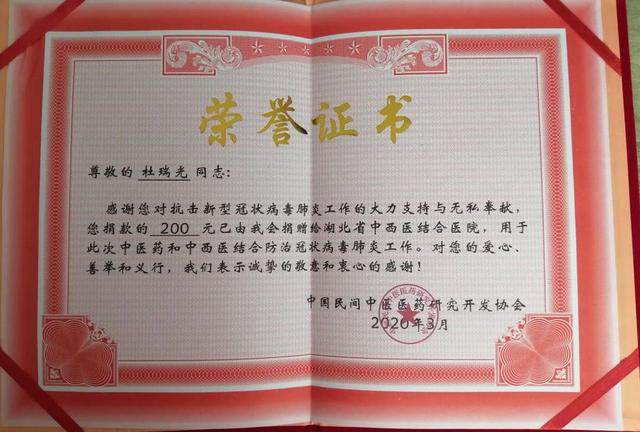 荣誉证书
尊敬的 杜瑞光 同志：
感谢您对抗击新型冠状病毒肺炎工作的大力支持与无私奉献，
您捐款的 200 元已由我会捐赠给湖北省中西医结合医院，用于
此次中医药和中西医结合防治冠状病毒肺炎工作。对您的爱心、
善举和义行，我们表示诚挚的敬意和衷心的感谢！
中国民间中医医药研究开发协会
2020年3月